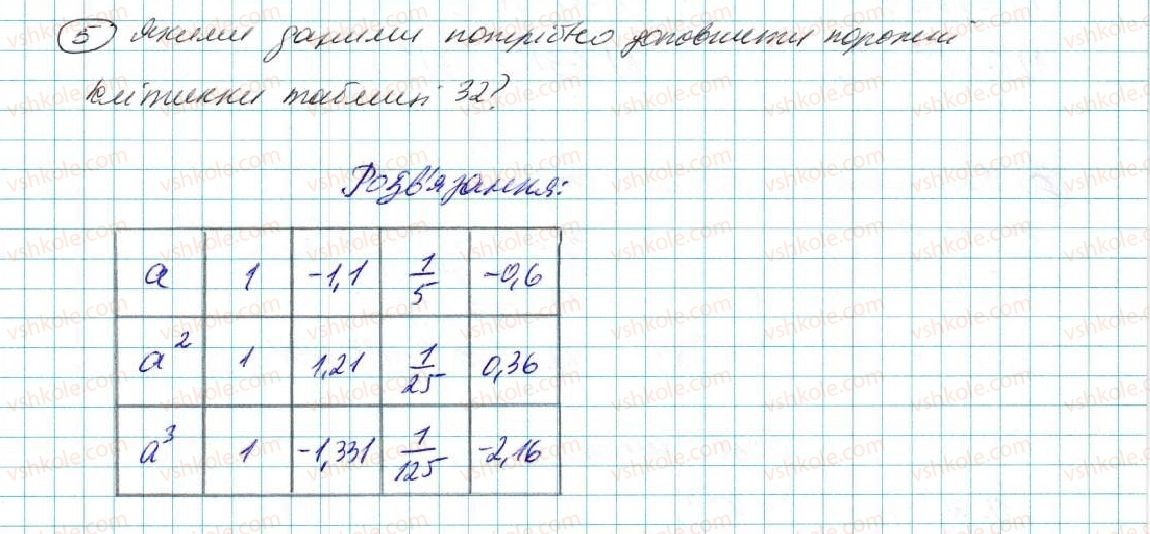 5 Якими даними потрібно доповнити порожні
клітинки таблиці 32?
Розв'язання:
a 1 -1,1 1/5 -0,6
a² 1 1,21 1/25 0,36
a³ 1 -1,331 1/125 -2,16
vshkole.com